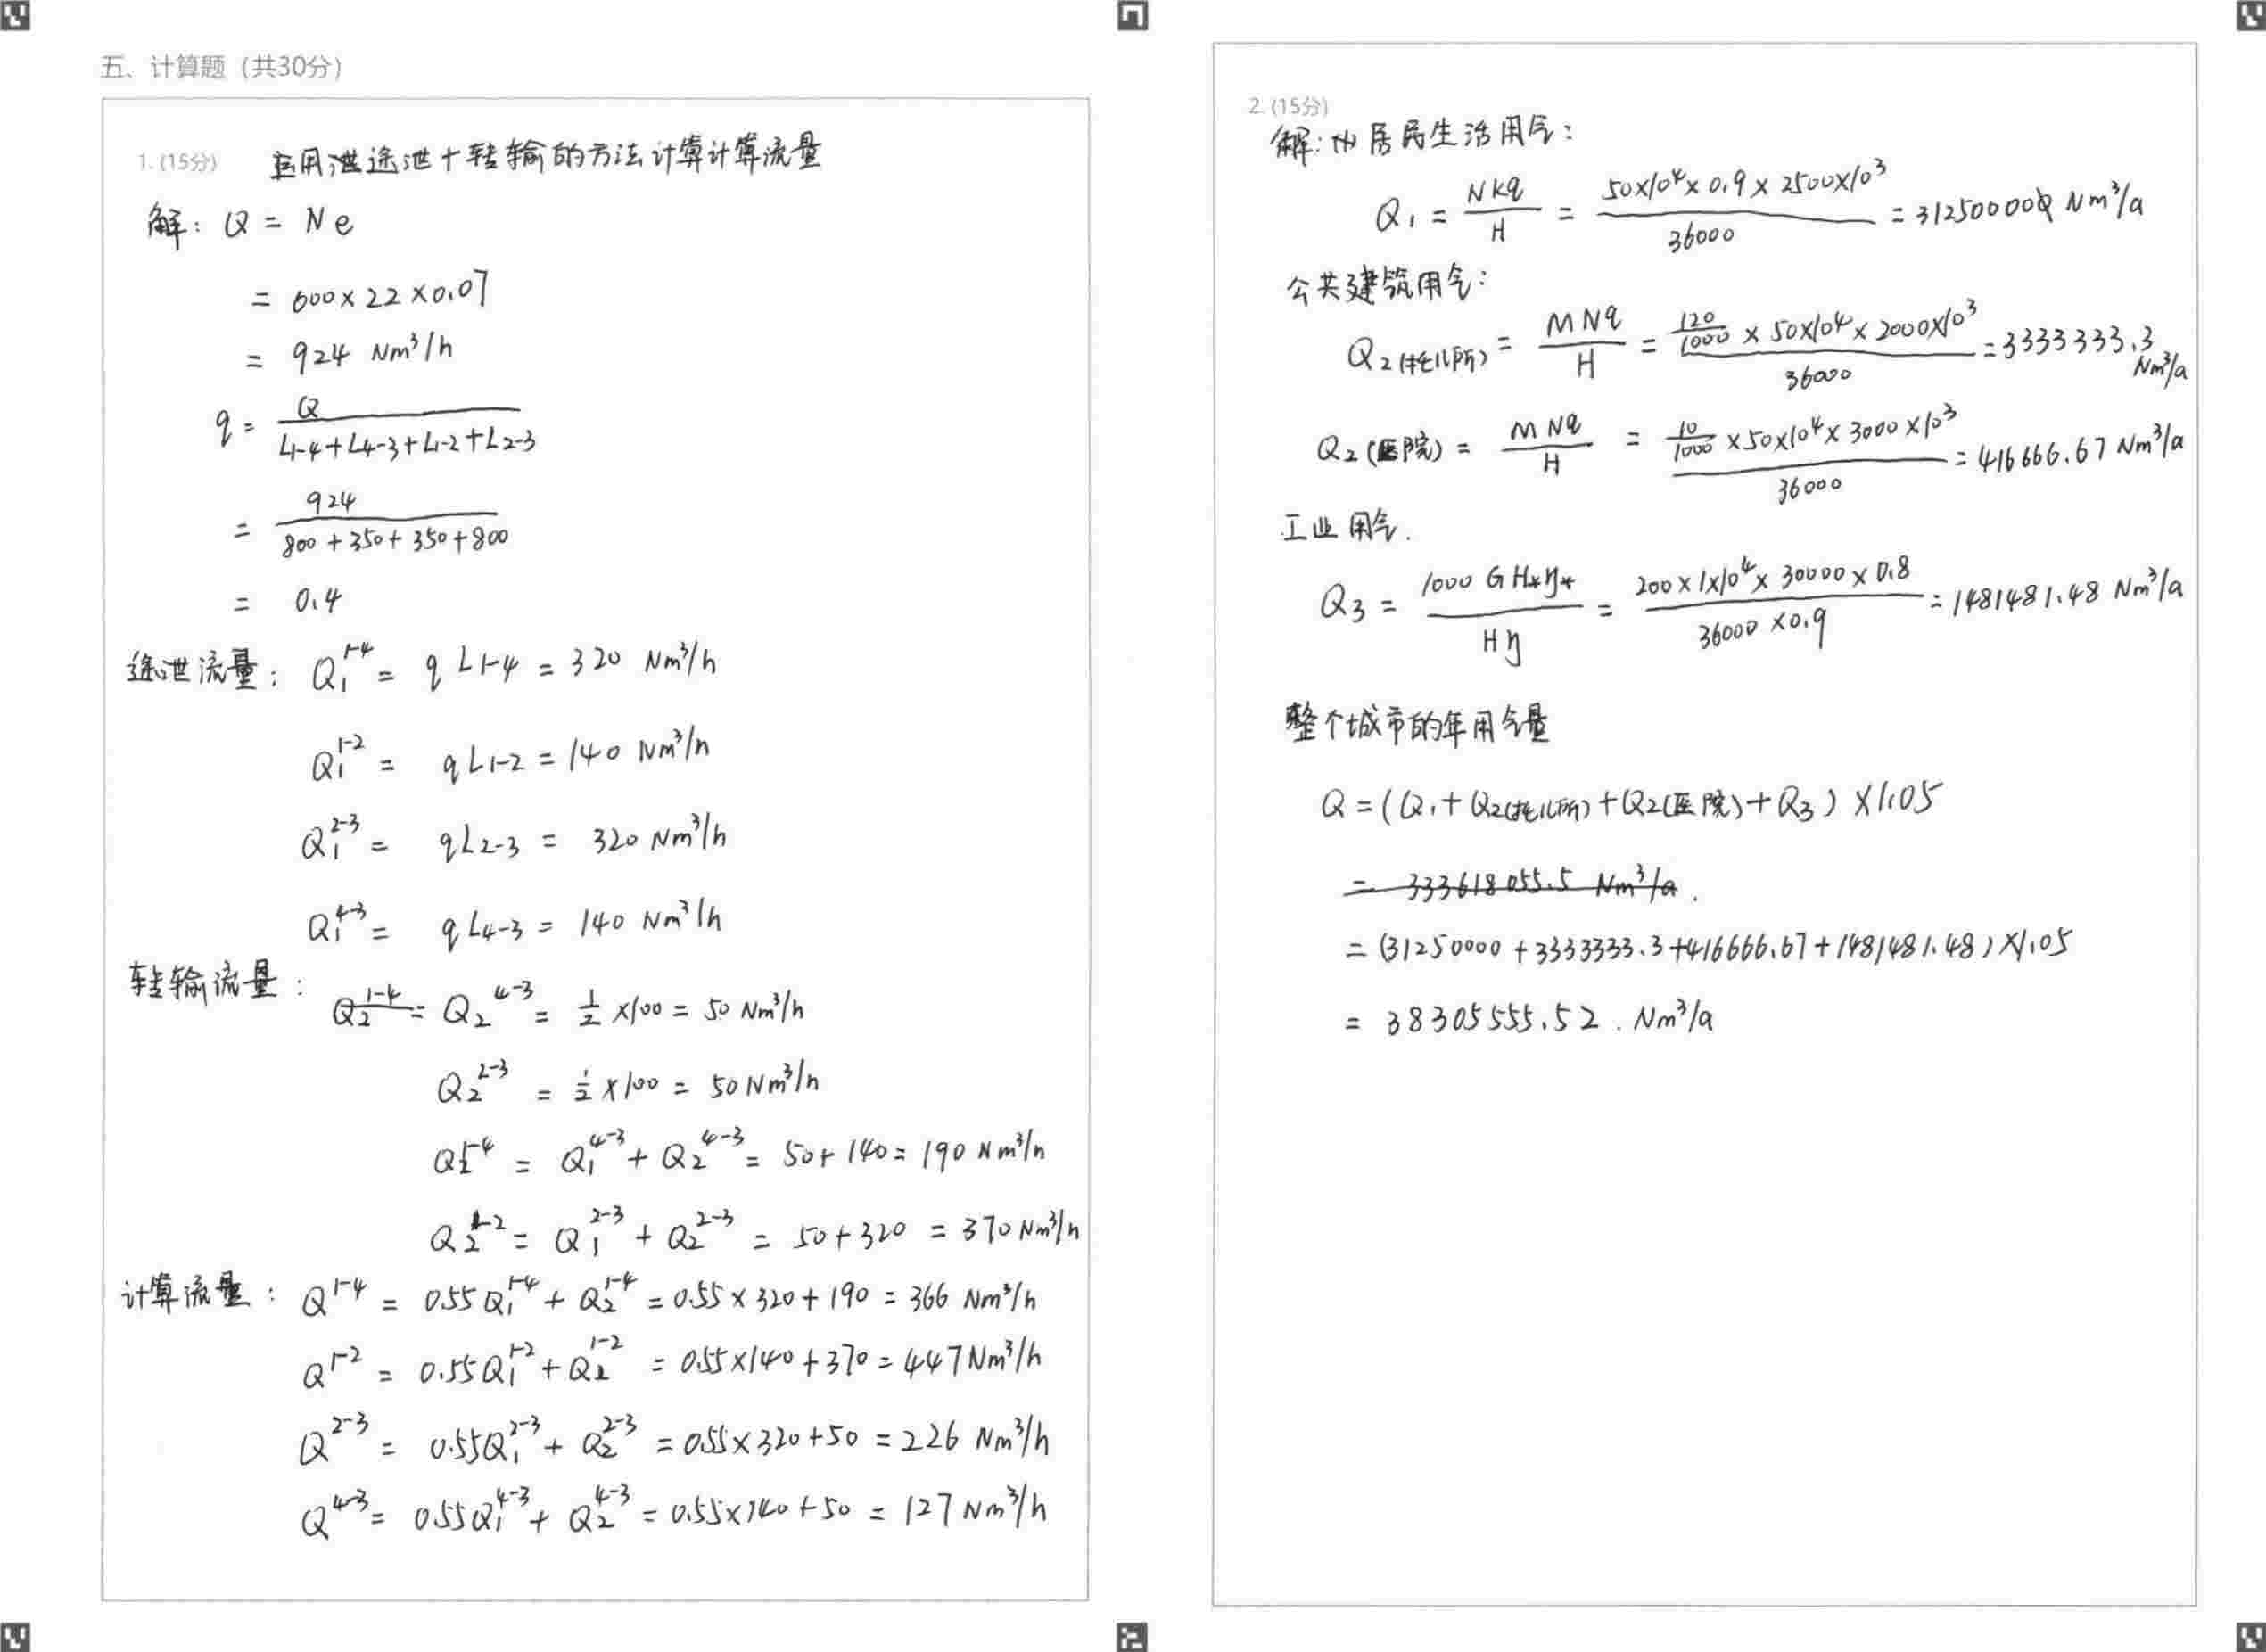 五、计算题（共30分）
1. (15分) 运用泄途泄+转输的方法计算计算流量
解：Q = Ne
= 600×22×0.07
= 924 Nm³/h
q = Q / (L1-4+L4-3+L1-2+L2-3)
= 924 / (800+350+350+800)
= 0.4
途泄流量： Q₁¹⁻⁴ = qL1-4 = 320 Nm³/h
Q₁¹⁻² = qL1-2 = 140 Nm³/h
Q₁²⁻³ = qL2-3 = 320 Nm³/h
Q₁⁴⁻³ = qL4-3 = 140 Nm³/h
转输流量： Q₂¹⁻⁴ = Q₂⁴⁻³ = 1/2 ×100 = 50 Nm³/h
Q₂²⁻³ = 1/2 ×100 = 50 Nm³/h
Q₂¹⁻⁴ = Q₁⁴⁻³ + Q₂⁴⁻³ = 50+140 = 190 Nm³/h
Q₂¹⁻² = Q₁²⁻³ + Q₂²⁻³ = 50+320 = 370 Nm³/h
计算流量： Q¹⁻⁴ = 0.55Q₁¹⁻⁴ + Q₂¹⁻⁴ = 0.55×320+190 = 366 Nm³/h
Q¹⁻² = 0.55Q₁¹⁻² + Q₂¹⁻² = 0.55×140+370 = 447 Nm³/h
Q²⁻³ = 0.55Q₁²⁻³ + Q₂²⁻³ = 0.55×320+50 = 226 Nm³/h
Q⁴⁻³ = 0.55Q₁⁴⁻³ + Q₂⁴⁻³ = 0.55×140+50 = 127 Nm³/h
2. (15分)
解： 居民生活用气：
Q₁ = NKq / H = 50×10⁴×0.9×2500×10³ / 36000 = 31250000 Nm³/a
公共建筑用气：
Q₂(托儿所) = MNq / H = 120/1000 ×50×10⁴×2000×10³ / 36000 = 3333333.3 Nm³/a
Q₂(医院) = MNq / H = 10/1000 ×50×10⁴×3000×10³ / 36000 = 416666.67 Nm³/a
工业用气.
Q₃ = 1000GH*η* / Hη = 200×1×10⁴×30000×0.8 / 36000×0.9 = 1481481.48 Nm³/a
整个城市的年用气量
Q = (Q₁+Q₂(托儿所)+Q₂(医院)+Q₃)×1.05
= 333618055.5 Nm³/a.
= (31250000+3333333.3+416666.67+1481481.48)×1.05
= 38305555.52. Nm³/a